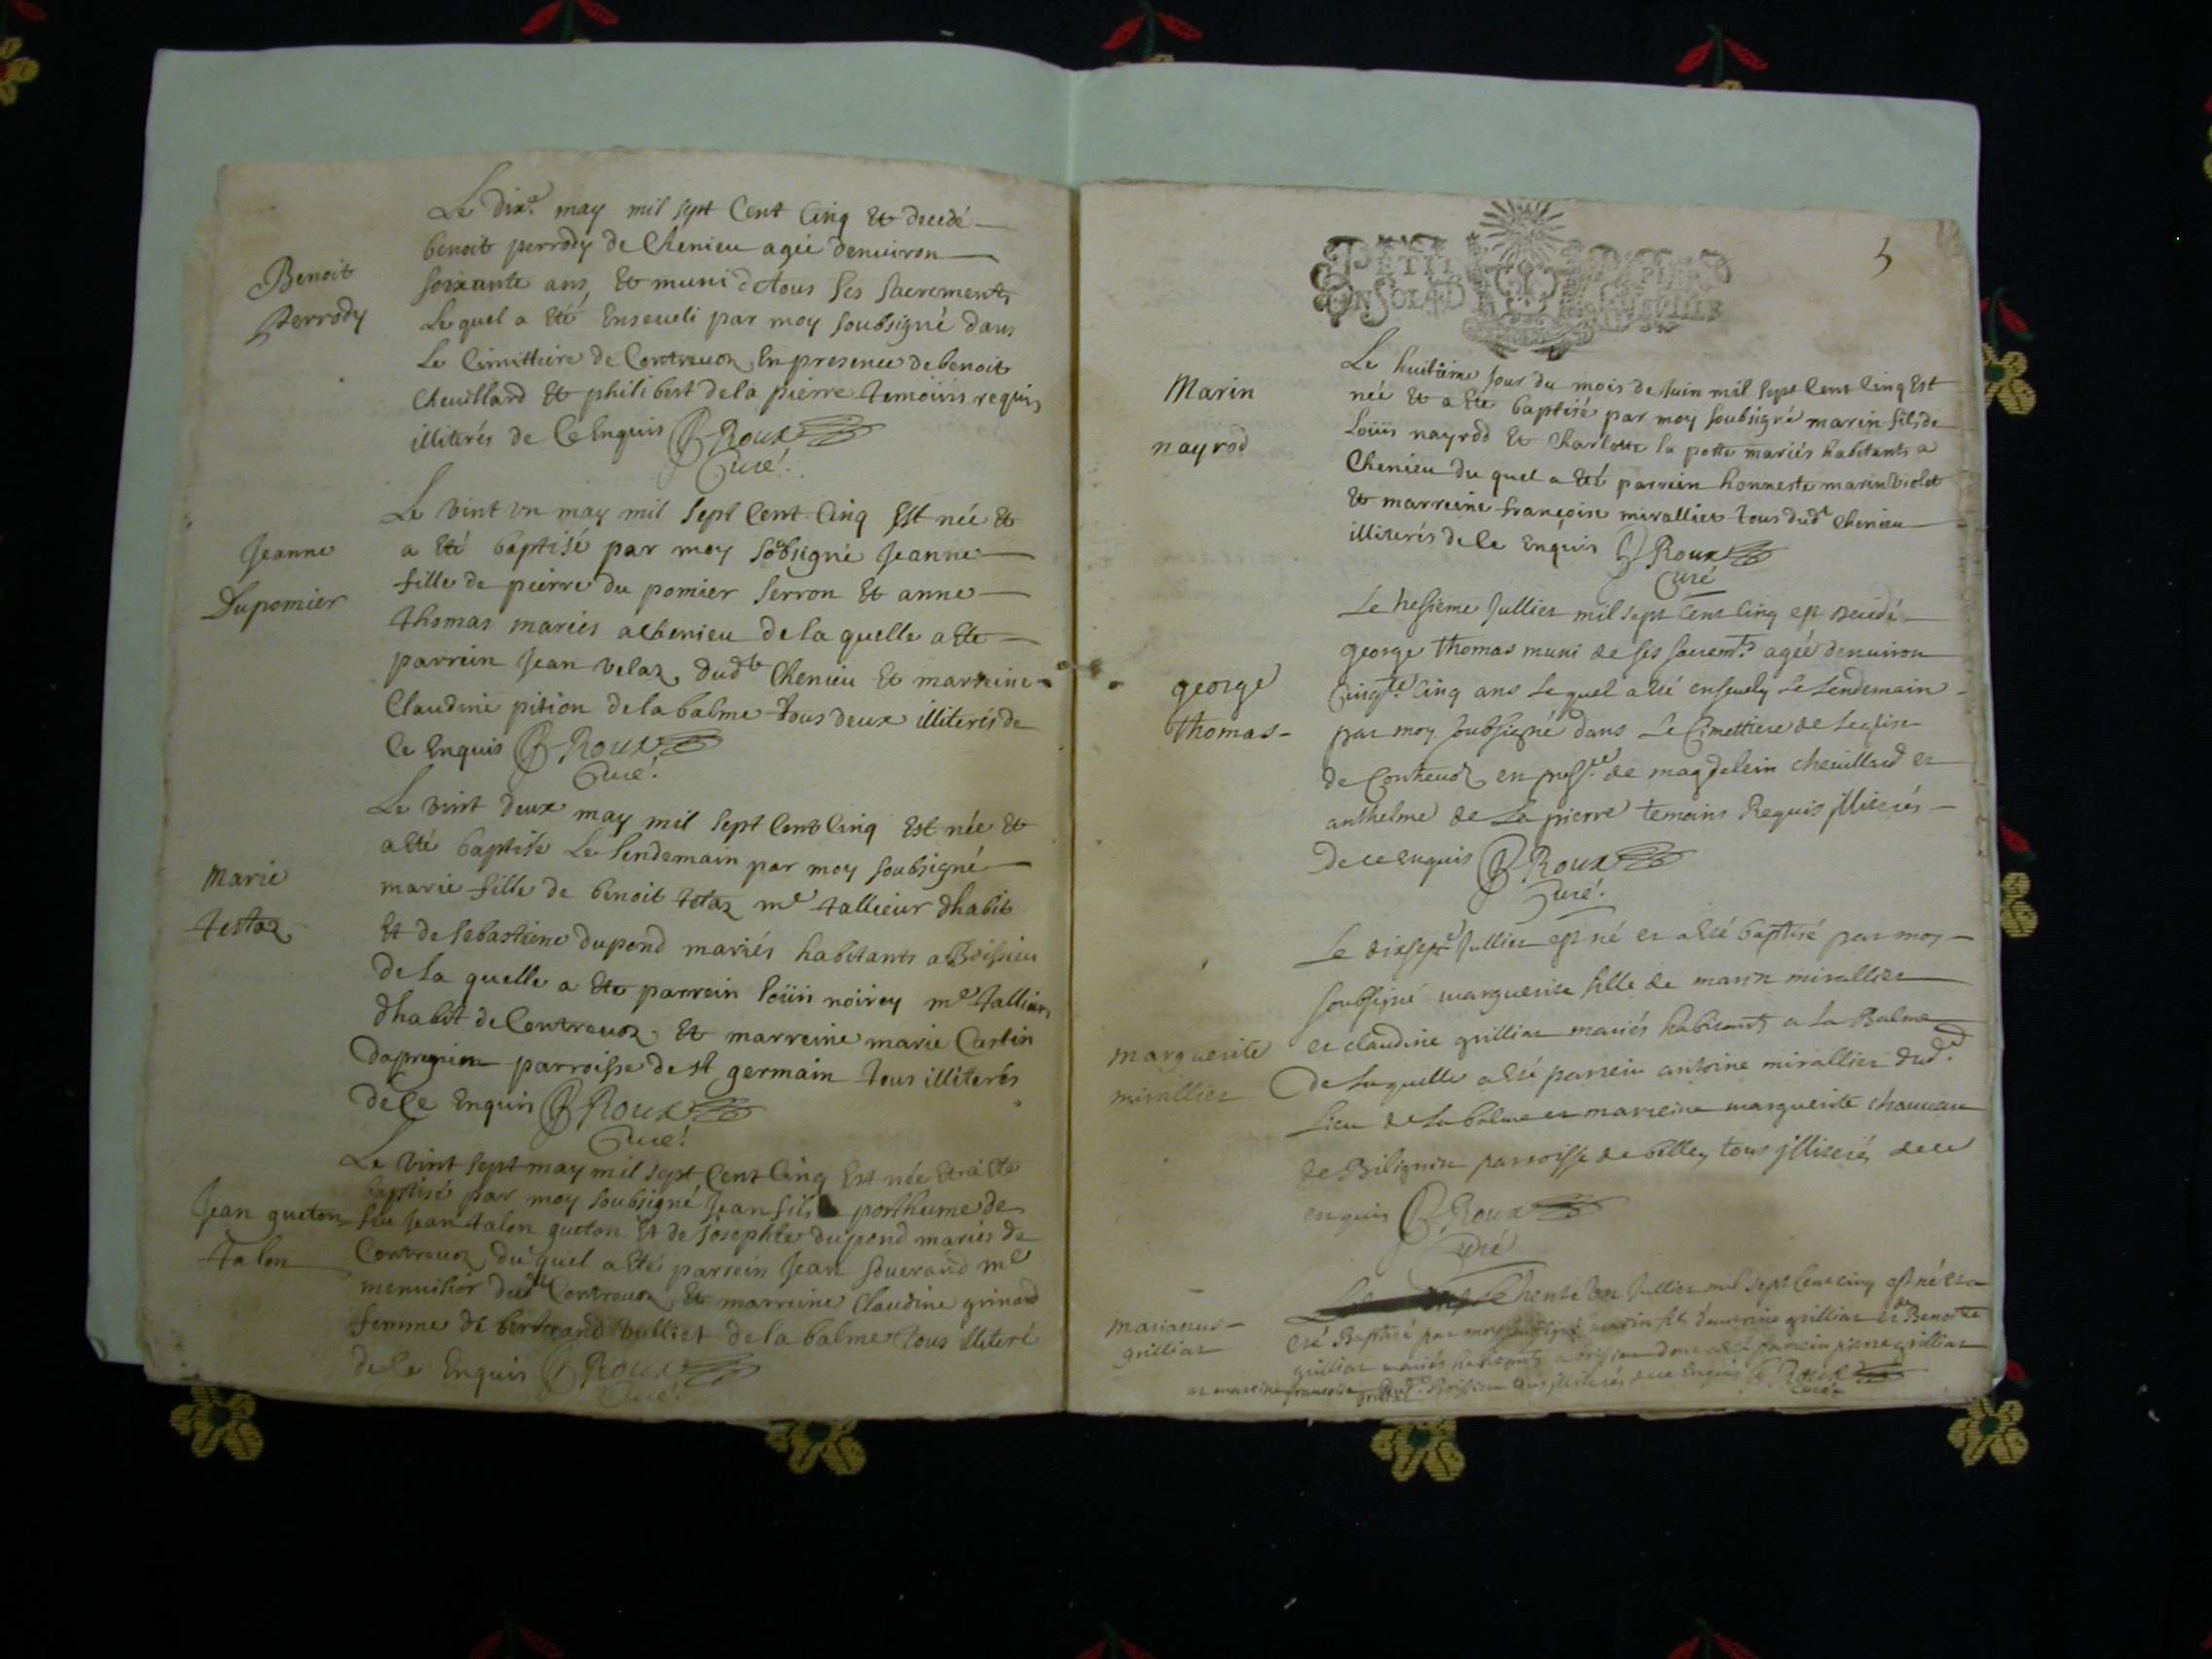 Le dix.e may mil sept Cent Cinq Et decedé
Benoit
Perrody
benoit perrody de Chenieu agée denuiron
soixante ans Et muni de tous ses sacrements
Le quel a Eté Enseueli par moy soubsigné dans
Le Cimittiere de Contreuoz En presence de benoit
Cheuillard Et philibert de la pierre temoins requis
illiterés de Ce Enquis B Roux
Curé.
Le vint vn may mil sept Cent Cinq Est née Et
Jeanne
Dupomier
a Eté baptisé par moy sobsigné Jeanne
fille de pierre du pomier serron Et anne
thomas mariés a chenieu de la quelle a Ete
parrein Jean velaz dudt Chenieu Et marreine
Claudine pition de la balme tous deux illiterés de
Ce Enquis B Roux
Curé.
Le vint deux may mil sept Cent Cinq Est née Et
a Eté baptisé Le Lendemain par moy soubsigné
Marie
testaz
marie fille de benoit tetaz me tallieur dhabit
Et de sebastiene dupond mariés habitants a Boissieu
de la quelle a Ete parrein loüis noirey me tallieur
dhabit de Contreuoz Et marreine marie Castin
parroisse de st germain tous illiterés
de Ce Enquis B Roux
Curé.
Le vint sept may mil sept Cent Cinq Est née Et a Ete
Jean gueton
talon
baptisé par moy soubsigné Jean fils posthume de
feu Jean talon gueton Et de Josephte dupond mariés de
Contreuoz du quel a Eté parrein Jean souerand me
menuisier dudt Contreuoz Et marreine Claudine grinand
femme de bertrand vulliet de la balme tous illiteré
de Ce Enquis B Roux
Curé.
5
PETIT PAPIER
UN SOL
Le huitieme Jour du mois de Juin mil sept Cent Cinq Est
Marin
nayrod
née Et a Eté baptisé par moy soubsigné marin fils de
Loüis nayrod Et Charlotte la potte mariés habitants a
Chenieu du quel a Eté parrein honneste marin violet
Et marreine françoise mirallier tous dudt Chenieu
illiterés de Ce Enquis B Roux
Curé
Le tresieme Jullier mil sept Cent Cinq est decedé
george
thomas
george thomas muni de ses sacremts agée denuiron
Cinqte Cinq ans Lequel a eté enseuely Le Lendemain
par moy soubsigné dans Le Cimettiere de Leglise
de Contreuoz en pnsce de magdelein cheuillard et
anthelme de La pierre temoins Requis jlliterés
de ce enquis B Roux
Curé.
Le dixsepte Jullier est né et a eté baptisé par moy
marguerite
mirallier
soubsigné marguerite fille de marin mirallier
et claudine grilliat mariés habitants a La Balme
de Laquelle a eté parrein antoine mirallier dudt
Lieu de La balme et marreine marguerite
de Bilignin parroisse de belley tous jlliterés de ce
enquis B Roux
Curé
marianus
grilliat
Le trente vn Jullier mil sept Cent cinq est né et a
eté Baptisé par moy soubsigné fils grilliat et de Benoitte
grilliat mariés habitants a dont a eté parrein pierre grilliat
et marreine françoise grilliat tous jlliterés de ce Enquis B Roux
Curé